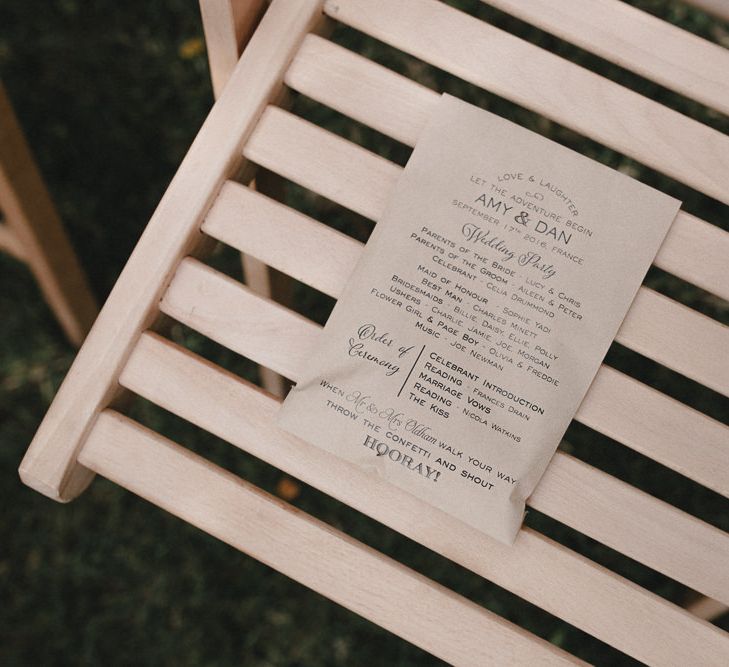 LOVE & LAUGHTER
LET THE ADVENTURE BEGIN
AMY & DAN
SEPTEMBER 17TH 2016, FRANCE
Wedding Party
PARENTS OF THE BRIDE - LUCY & CHRIS
PARENTS OF THE GROOM - AILEEN & PETER
CELEBRANT - CELIA DRUMMOND
MAID OF HONOUR - SOPHIE YADI
BEST MAN - CHARLES MINETT
BRIDESMAIDS - BILLIE, DAISY, ELLIE, POLLY
USHERS - CHARLIE, JAMIE, JOE, MORGAN
FLOWER GIRL & PAGE BOY - OLIVIA & FREDDIE
MUSIC - JOE NEWMAN
Order of
Ceremony
CELEBRANT INTRODUCTION
READING - FRANCES DRAIN
MARRIAGE VOWS
READING - NICOLA WATKINS
THE KISS
WHEN Mr & Mrs Oldham WALK YOUR WAY
THROW THE CONFETTI AND SHOUT
HOORAY!